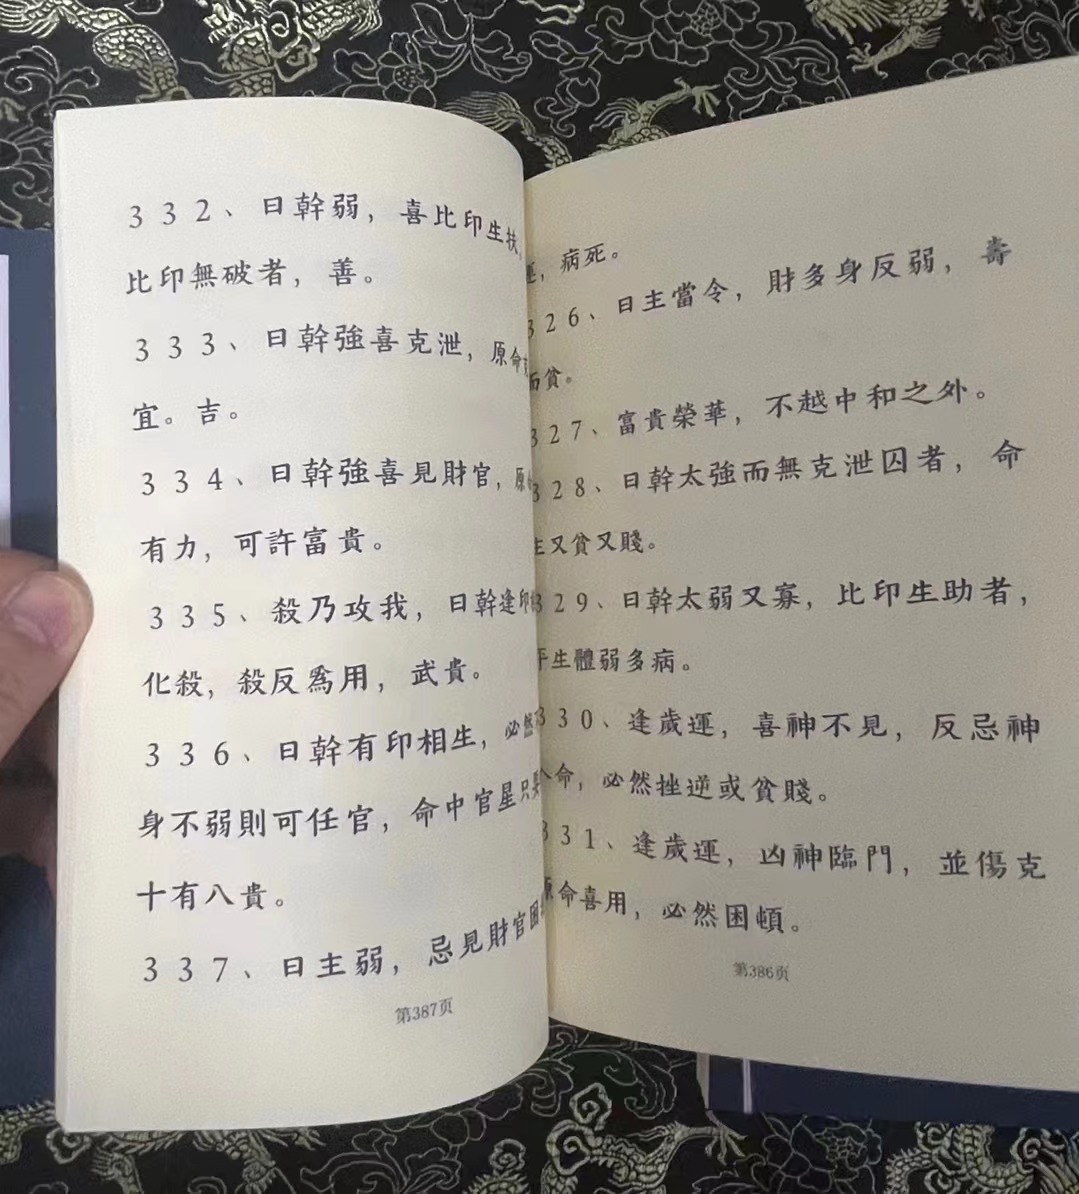 332、日幹弱，喜比印生扶，
比印無破者，善。
333、日幹強喜克泄，原命
宜。吉。
334、日幹強喜見財官，原
有力，可許富貴。
335、殺乃攻我，日幹逢印
化殺，殺反爲用，武貴。
336、日幹有印相生，必然
身不弱則可任官，命中官星只要
十有八貴。
337、日主弱，忌見財官
第387页
運，病死。
326、日主當令，財多身反弱，壽
而貧。
327、富貴榮華，不越中和之外。
328、日幹太強而無克泄囚者，命
生又貧又賤。
329、日幹太弱又寡，比印生助者，
平生體弱多病。
330、逢歲運，喜神不見，反忌神
命，必然挫逆或貧賤。
331、逢歲運，凶神臨門，並傷克
原命喜用，必然困頓。
第386页